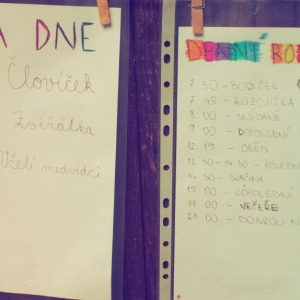 A DNE
Človíček
Zvířátka
Včelí medvídci
DENNÍ
7.30 - BUDÍČEK
7 45 - ROZCVIČKA
8 00 - SNÍDANĚ
9 00 - DOPOLEDNÍ
12.15 - OBĚD
12.30 - 14.30 - POLEDNÍ
14.30 - SVAČINA
15 00 - ODPOLEDNÍ
18 00 - VEČEŘE
21 00 - DOBROU